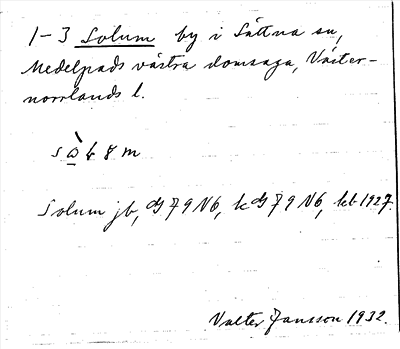 1-3 Solum by i Sättna sn,
Medelpads västra domsaga, Väster-
norrlands l.
Solum jb, GJ 79 N6, k GJ 79 N6, kb 1927.
Valter Jansson 1932.